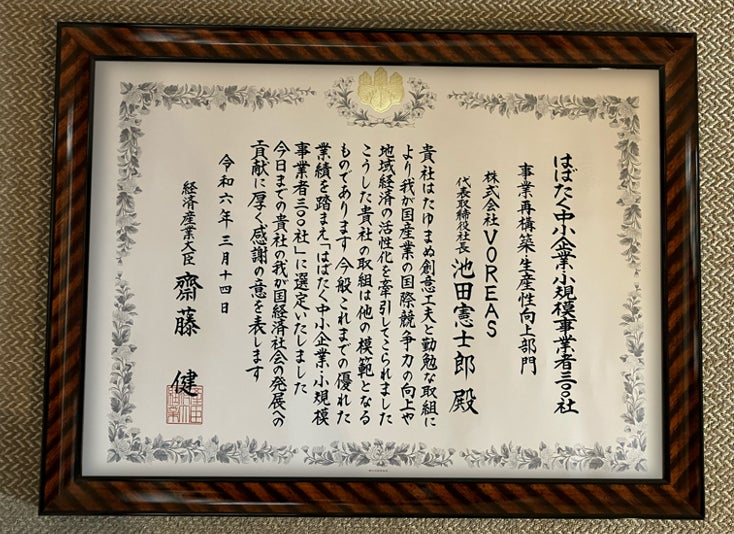 はばたく中小企業・小規模事業者三〇〇社
事業再構築・生産性向上部門
株式会社VOREAS
代表取締役社長 池田憲士郎 殿
貴社はたゆまぬ創意工夫と勤勉な取組に
より我が国産業の国際競争力の向上や
地域経済の活性化を牽引してこられました
こうした貴社の取組は他の模範となる
ものであります今般これまでの優れた
業績を踏まえ「はばたく中小企業・小規模
事業者三〇〇社」に選定いたしました
今日までの貴社の我が国経済社会の発展への
貢献に厚く感謝の意を表します
令和六年三月十四日
経済産業大臣 齋藤 健